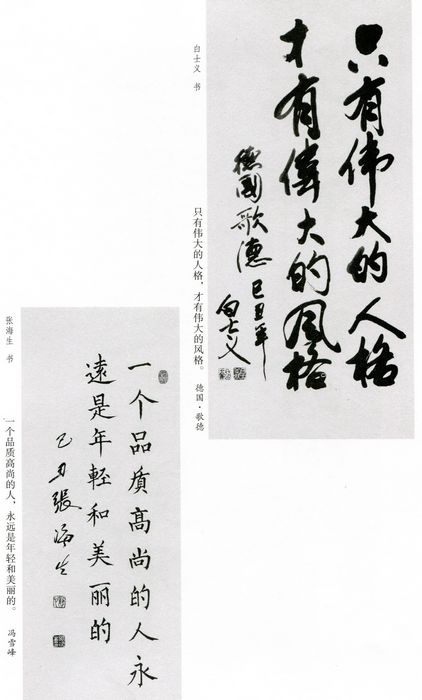 只有伟大的人格
才有偉大的風格
德國歌德 己丑年
白士义
白士义 书
只有伟大的人格，才有伟大的风格。 德国·歌德
一个品質高尚的人永
遠是年輕和美丽的
己丑張海生
张海生 书
一个品质高尚的人，永远是年轻和美丽的。 冯雪峰